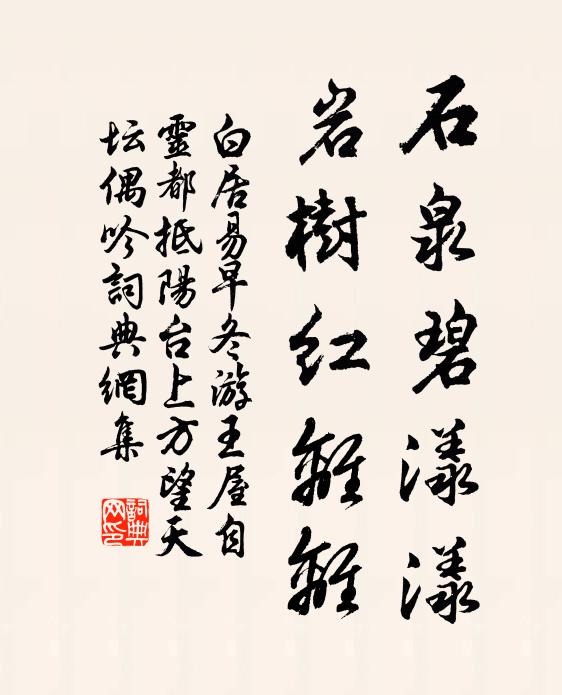 石泉碧漾漾
岩樹红離離
白居易早冬游王屋自
靈都抵陽台上方望天
坛偶吟詞典網集
詞典
网印